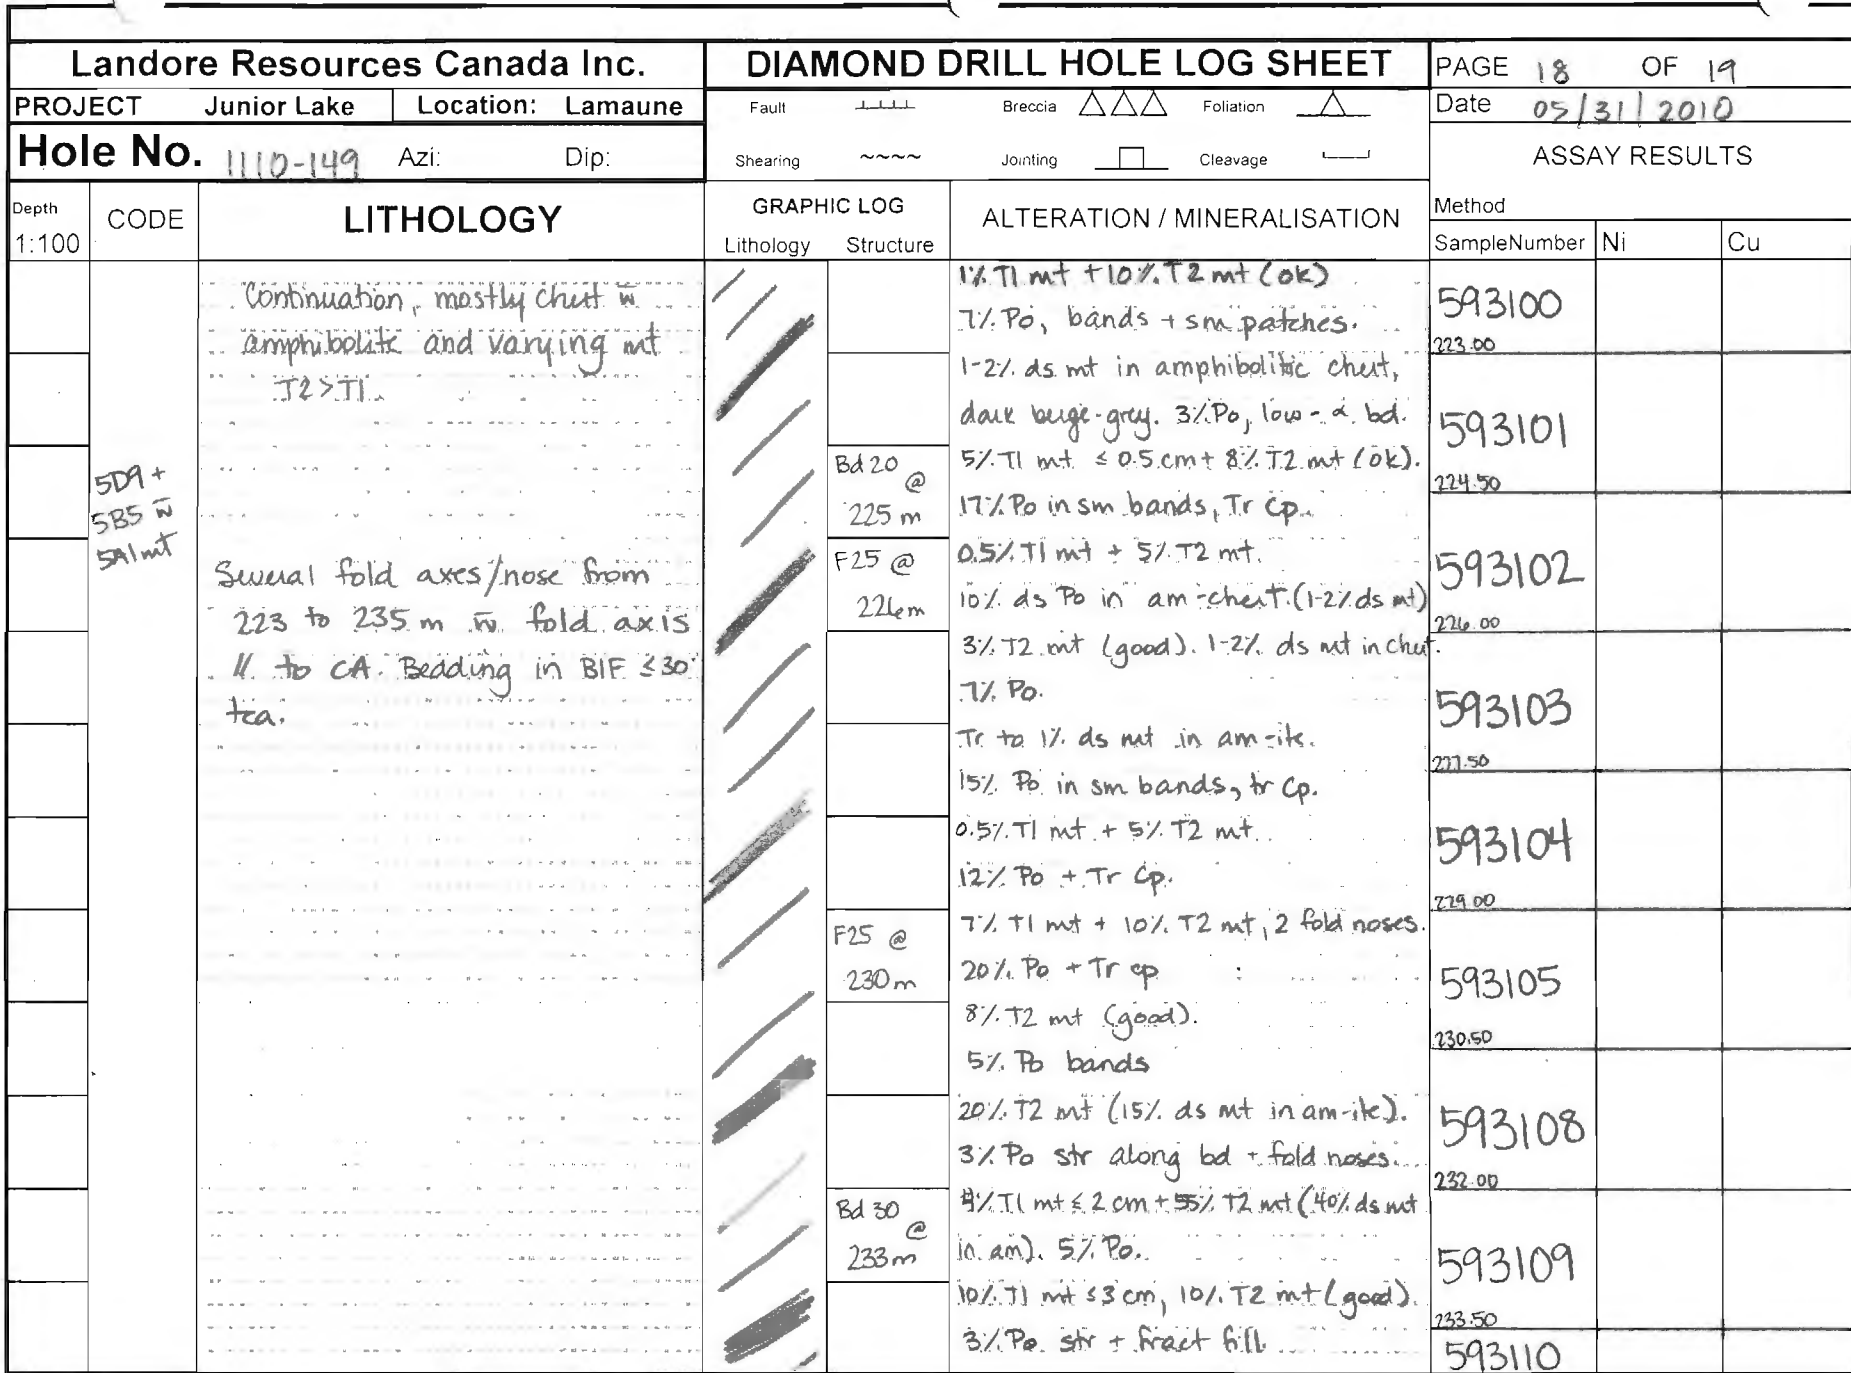 Landore Resources Canada Inc.
DIAMOND DRILL HOLE LOG SHEET
PAGE 18 OF 19
PROJECT Junior Lake Location: Lamaune
Fault Breccia Foliation
Date 05/31/2010
Hole No. 1110-149 Azi: Dip:
Shearing Jointing Cleavage
ASSAY RESULTS
Depth
1:100
CODE
LITHOLOGY
GRAPHIC LOG
Lithology Structure
ALTERATION / MINERALISATION
Method
SampleNumber Ni Cu
5D9 +
5B5 w̄
5A1 mt
Continuation, mostly chert w̄
amphibolite and varying mt
T2 > T1.
Several fold axes/nose from
223 to 235 m w̄ fold axis
// to CA. Bedding in BIF ≤ 30°
tca.
Bd 20 @
225 m
F25 @
226 m
F25 @
230 m
Bd 30 @
233 m
1% T1 mt + 10% T2 mt (ok)
7% Po, bands + sm patches.
1-2% ds mt in amphibolitic chert,
dark beige-grey. 3% Po, low-α bd.
5% T1 mt ≤ 0.5 cm + 8% T2 mt (ok).
17% Po in sm bands, Tr Cp.
0.5% T1 mt + 5% T2 mt.
10% ds Po in am-chert. (1-2% ds mt)
3% T2 mt (good). 1-2% ds mt in chert.
7% Po.
Tr to 1% ds mt in am-ite.
15% Po in sm bands, tr Cp.
0.5% T1 mt + 5% T2 mt.
12% Po + Tr Cp.
7% T1 mt + 10% T2 mt, 2 fold noses.
20% Po + Tr cp
8% T2 mt (good).
5% Po bands
20% T2 mt (15% ds mt in am-ite).
3% Po str along bd + fold noses.
4% T1 mt ≤ 2 cm + 55% T2 mt (40% ds mt
in am). 5% Po.
10% T1 mt ≤ 3 cm, 10% T2 mt (good).
3% Po str + fract fill.
593100
223.00
593101
224.50
593102
226.00
593103
227.50
593104
229.00
593105
230.50
593108
232.00
593109
233.50
593110